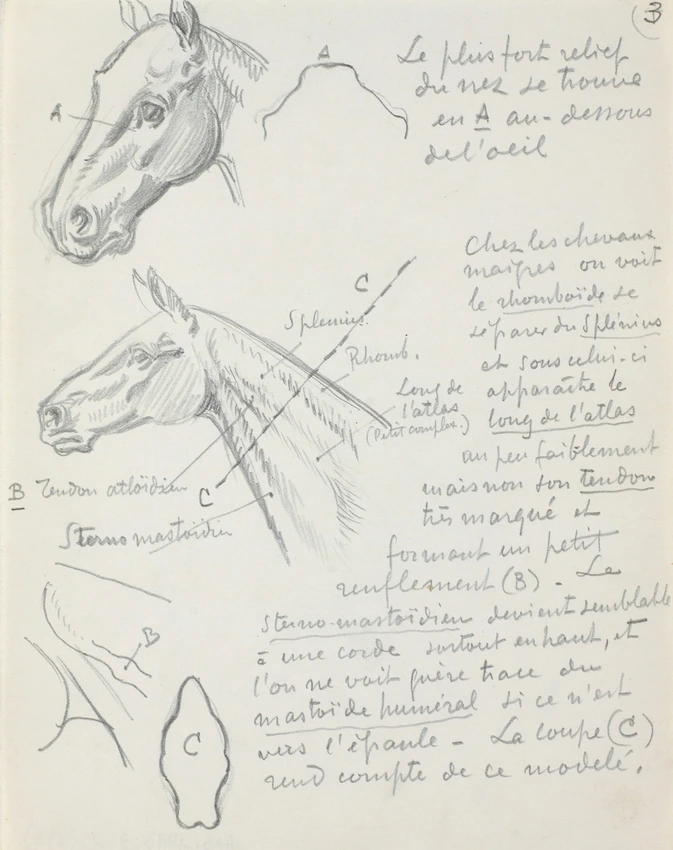 3
A
Le plus fort relief
du nez se trouve
en A au-dessous
de l'oeil
A
Chez les chevaux
maigres on voit
le rhomboïde se
séparer du Splénius
et sous celui-ci
apparaître le
long de l'atlas
un peu faiblement
mais non son tendon
très marqué et
formant un petit
renflement (B) - Le
sterno-mastoïdien devient semblable
à une corde surtout en haut, et
l'on ne voit guère trace du
mastoïde huméral si ce n'est
vers l'épaule - La coupe (C)
rend compte de ce modelé.
C
Splenius.
Rhomb.
Long de
l'atlas
(Petit complex.)
B Tendon atloïdien
C
Sterno mastoïdien
B
C